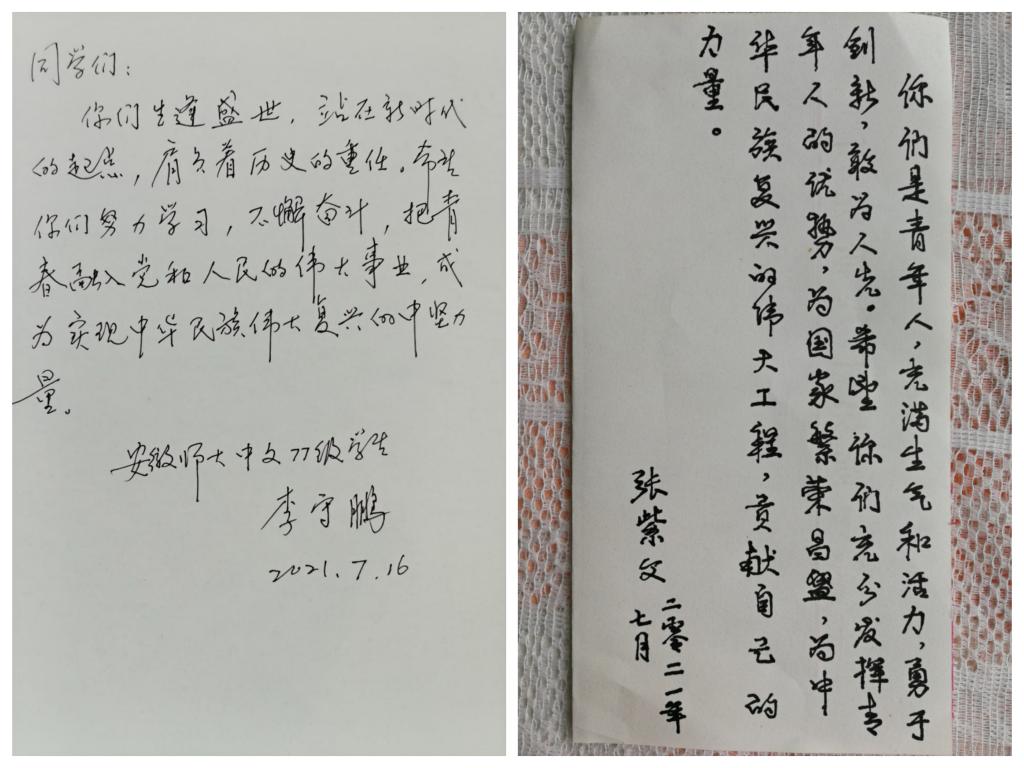 同学们：
你们生逢盛世，站在新时代
的起点，肩负着历史的重任。希望
你们努力学习，不懈奋斗，把青
春融入党和人民的伟大事业，成
为实现中华民族伟大复兴的中坚力
量。
安徽师大中文77级学生
李守鹏
2021.7.16
你们是青年人，充满生气和活力，勇于
创新，敢为人先。希望你们充分发挥青
年人的优势，为国家繁荣昌盛，为中
华民族复兴的伟大工程，贡献自己的
力量。
张紫文
二零二一年
七月